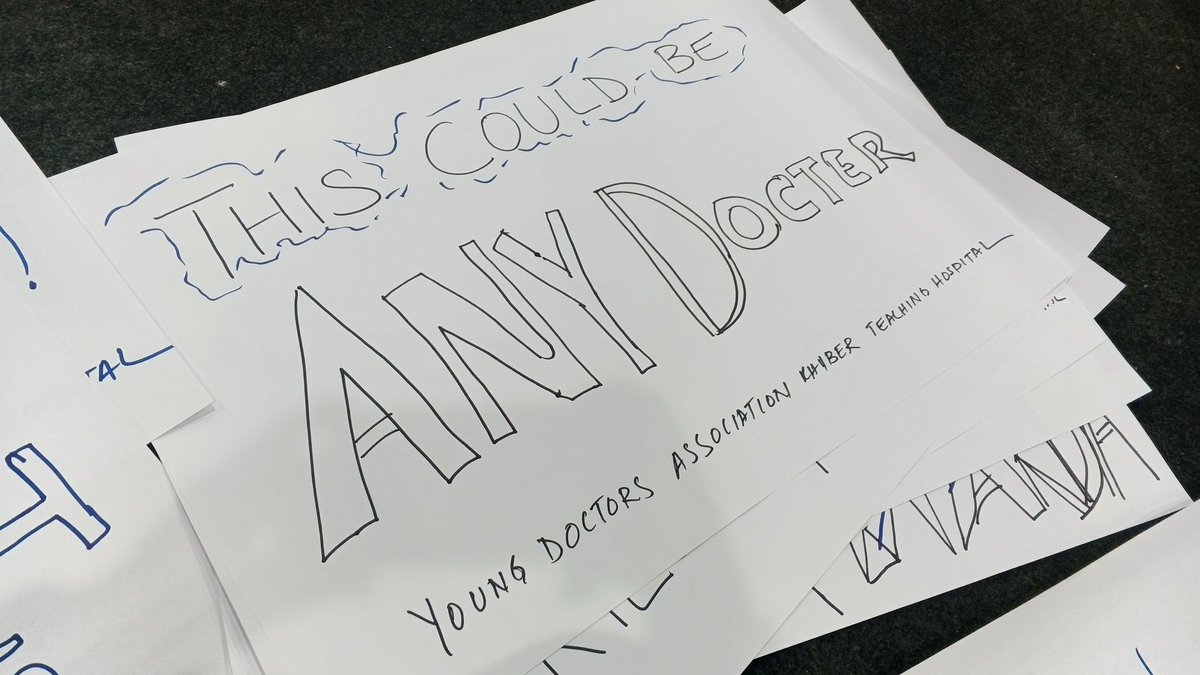 THIS COULD BE
ANY DOCTER
YOUNG DOCTORS ASSOCIATION KHYBER TEACHING HOSPITAL